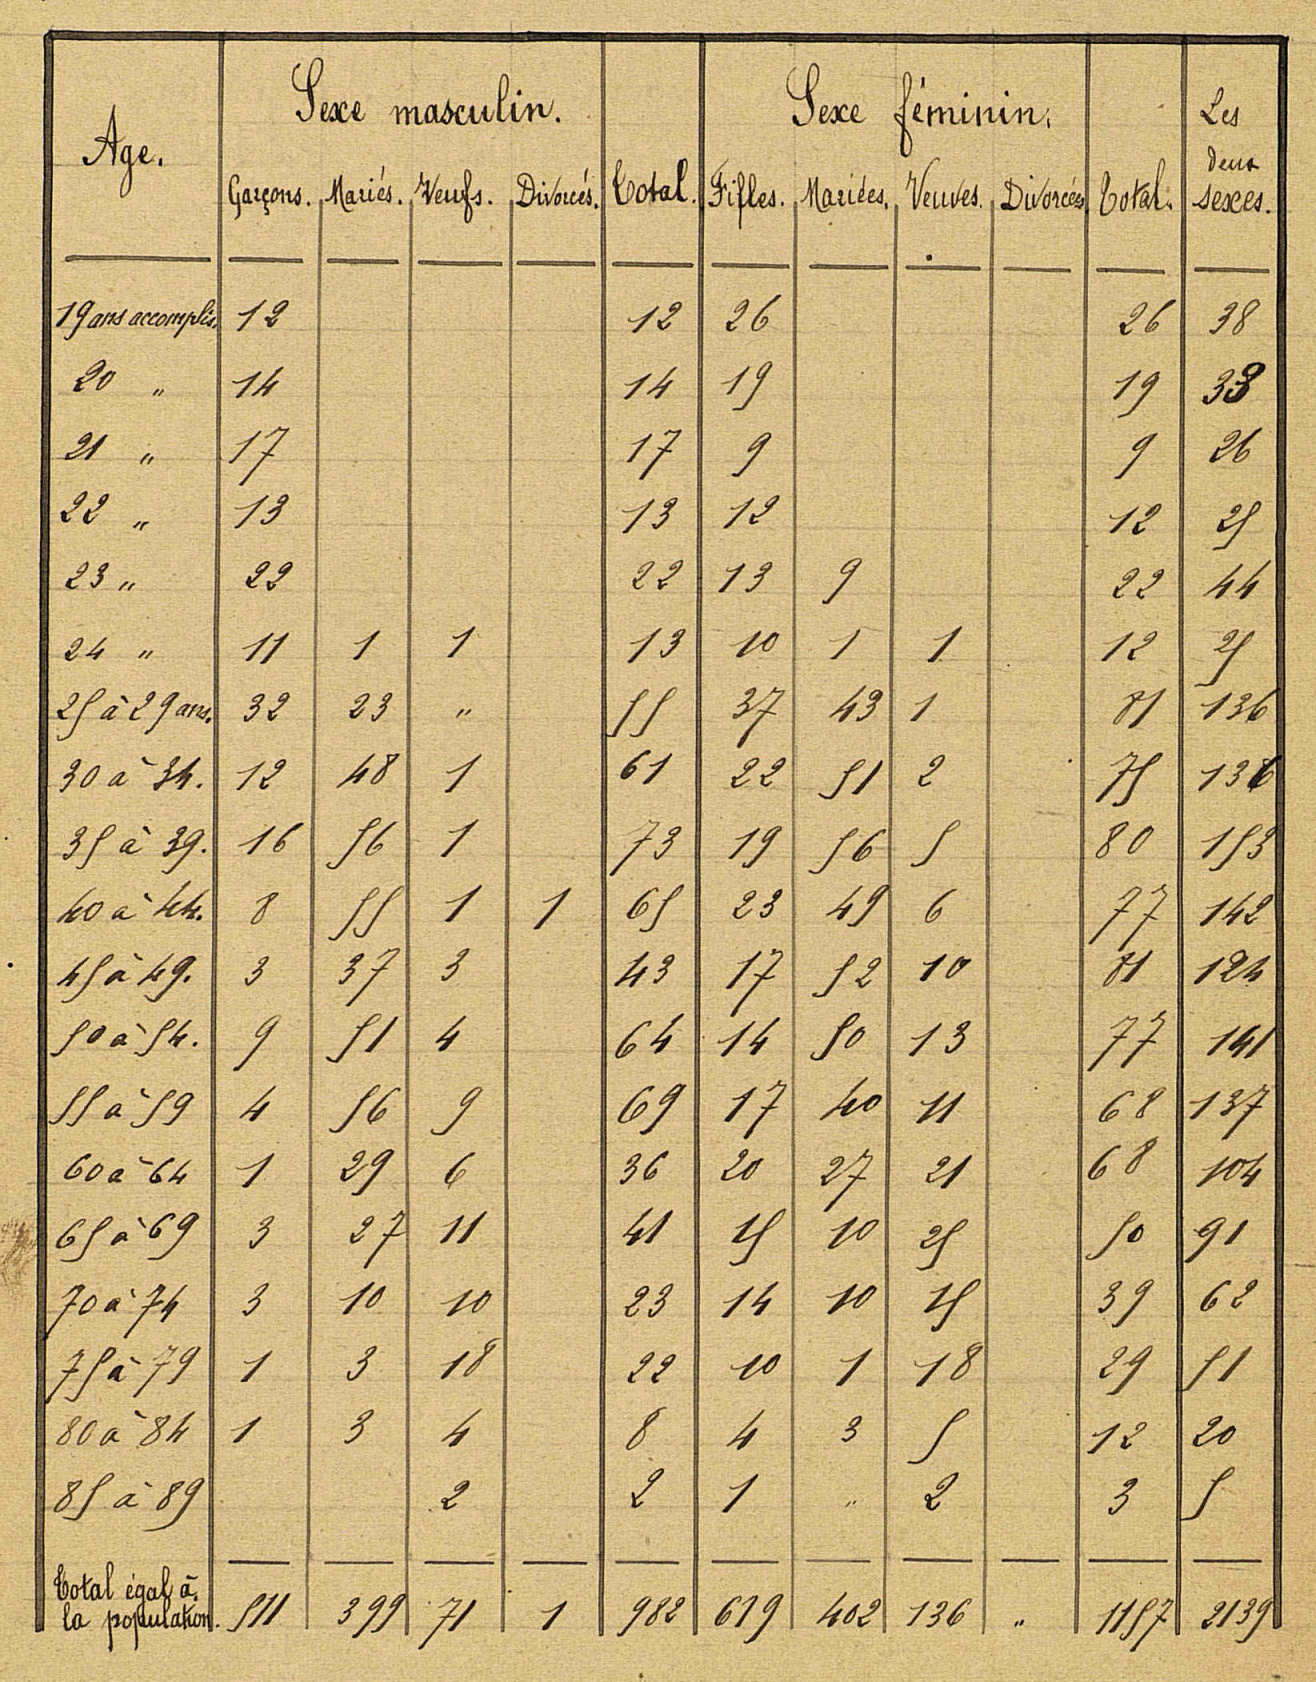 Age. Sexe masculin. Sexe féminin. Les deux sexes.
Garçons. Mariés. Veufs. Divorcés. Total. Filles. Mariées. Veuves. Divorcées Total.
19 ans accomplis. 12 12 26 26 38
20 " 14 14 19 19 33
21 " 17 17 9 9 26
22 " 13 13 12 12 25
23 " 22 22 13 9 22 44
24 " 11 1 1 13 10 1 1 12 25
25 à 29 ans. 32 23 " 55 37 43 1 81 136
30 à 34. 12 48 1 61 22 51 2 75 136
35 à 39. 16 56 1 73 19 56 5 80 153
40 à 44. 8 55 1 1 65 23 49 6 77 142
45 à 49. 3 37 3 43 17 52 10 81 124
50 à 54. 9 51 4 64 14 50 13 77 141
55 à 59 4 56 9 69 17 40 11 68 137
60 à 64 1 29 6 36 20 27 21 68 104
65 à 69 3 27 11 41 15 10 25 50 91
70 à 74 3 10 10 23 14 10 15 39 62
75 à 79 1 3 18 22 10 1 18 29 51
80 à 84 1 3 4 8 4 3 5 12 20
85 à 89 2 2 1 " 2 3 5
Total égal à
la population. 511 399 71 1 982 619 402 136 " 1157 2139